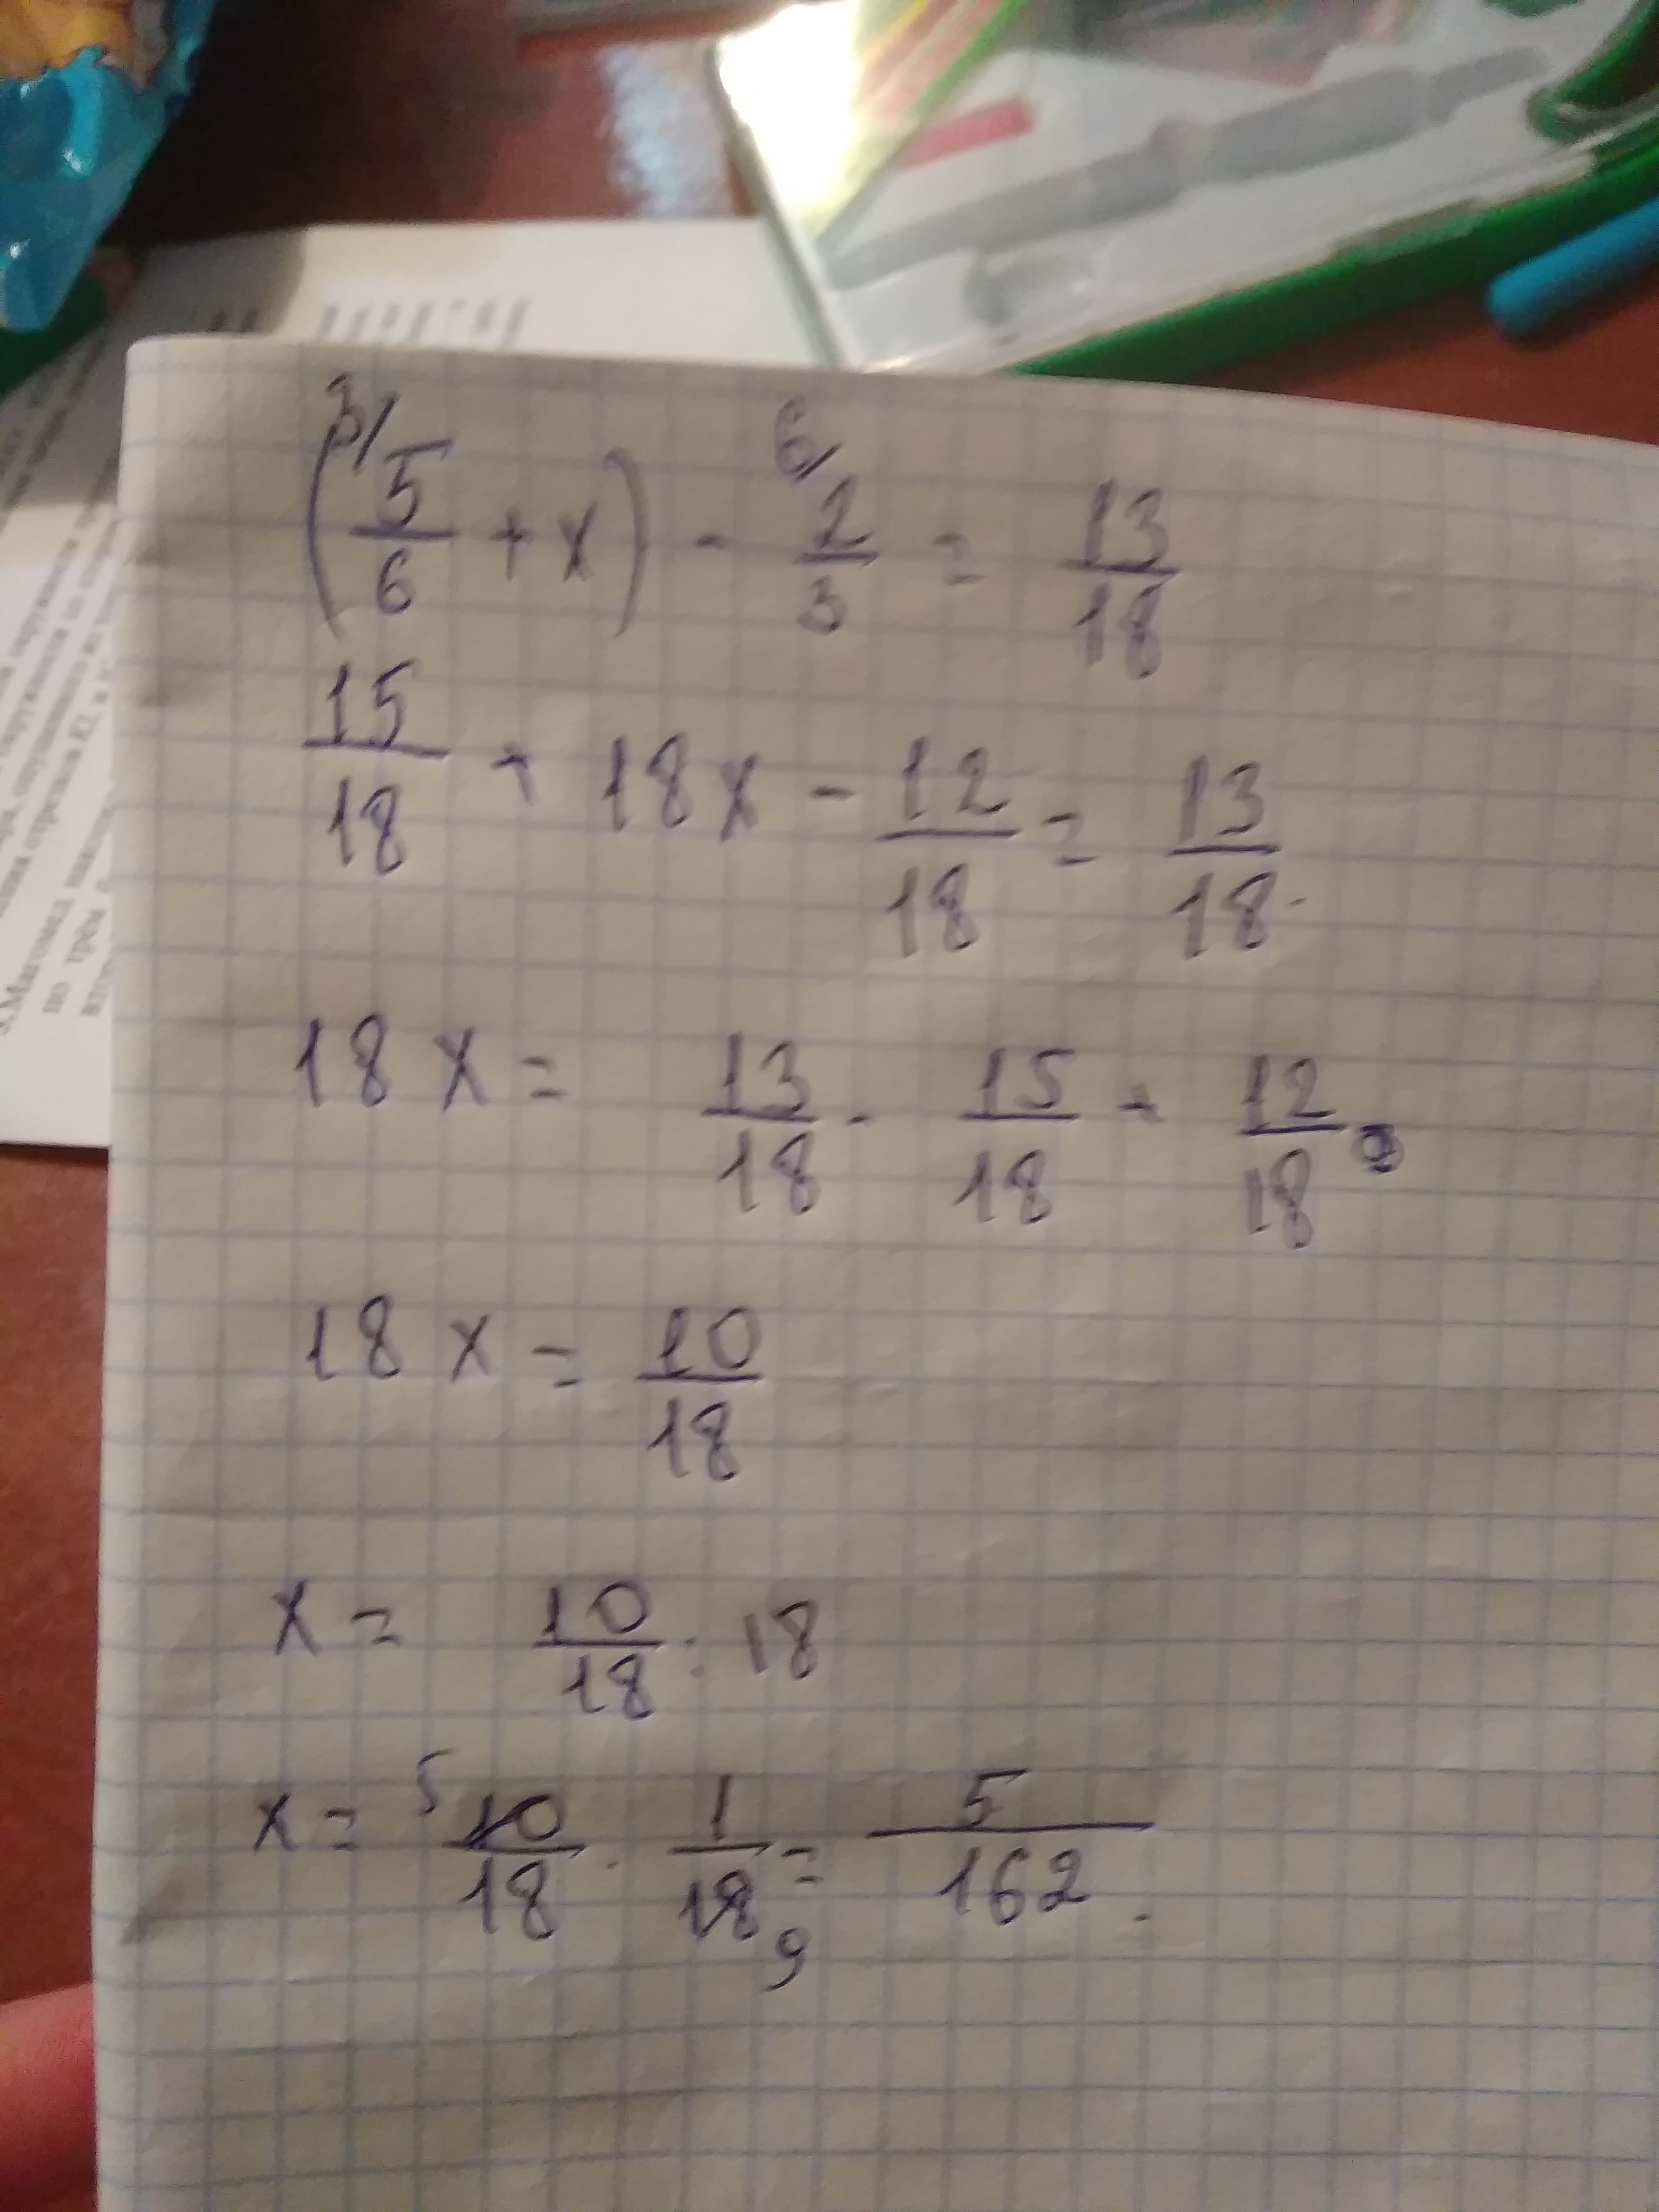 (3/ 5/6 + x) - 6/ 2/3 = 13/18
15/18 + 18x - 12/18 = 13/18
18x = 13/18 - 15/18 + 12/18
18x = 10/18
x = 10/18 : 18
x = 5 10/18 · 1/18 9 = 5/162.